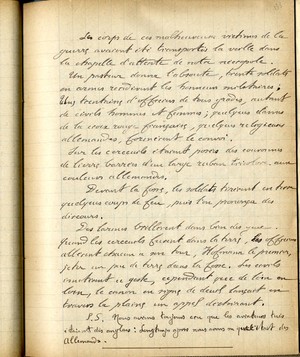 Les corps de ces malheureuses victimes de la
guerre avaient été transportés la veille dans
la chapelle d'attente de notre nécropole.
Un pasteur donne l'absoute, trente soldats
en armes rendent les honneurs militaires;
Une trentaine d'officiers de tous grades, autant
de civils hommes et femmes; quelques dames
de la croix rouge française, quelques religieuses
allemandes, formèrent le convoi.
Sur les cercueils étaient posées des couronnes
de lierre barrées d'un large ruban tricolore aux
couleurs allemandes.
Devant la fosse, les soldats tirèrent en l'air
quelques coups de feu, puis l'on prononça des
discours.
Des larmes brillèrent dans bien des yeux.
Quand les cercueils furent dans la terre, les officiers
allèrent chacun à son tour, Hofmann le premier,
jeter un peu de terre dans la fosse. Les civils
imitèrent ce geste, cependant que de loin en
loin, le canon en signe de deuil lançait en
travers la plaine un appel déchirant.
P.S. Nous avions toujours cru que les aviateurs tués
étaient des anglais: longtemps après nous avons su que c'était des
Allemands.